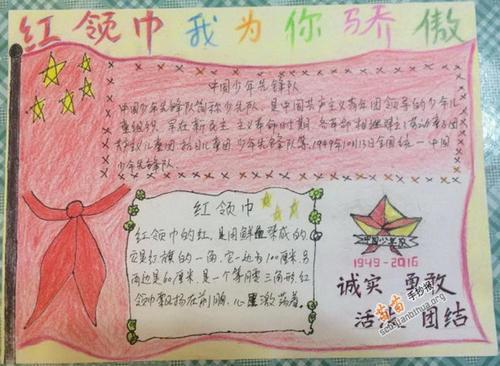 红领巾我为你骄傲
中国少年先锋队
中国少年先锋队简称少先队,是中国共产主义青年团领导的少年儿
童组织,早在新民主主义革命时期,各革命根据地建立了劳动童子团
共产主义儿童团,抗日儿童团,少年先锋队等,1949年10月13日全国统一中国
少年先锋队.
红领巾
红领巾的红,是用鲜血染成的
它是红旗的一角,它一边长100厘米,另
两边是60厘米,是一个等腰三角形.红
领巾飘扬在前胸,心里激荡着.
1949-2016
诚实 勇敢
活泼 团结
苗苗手抄报
shouchaobao.miaomiaohua.org